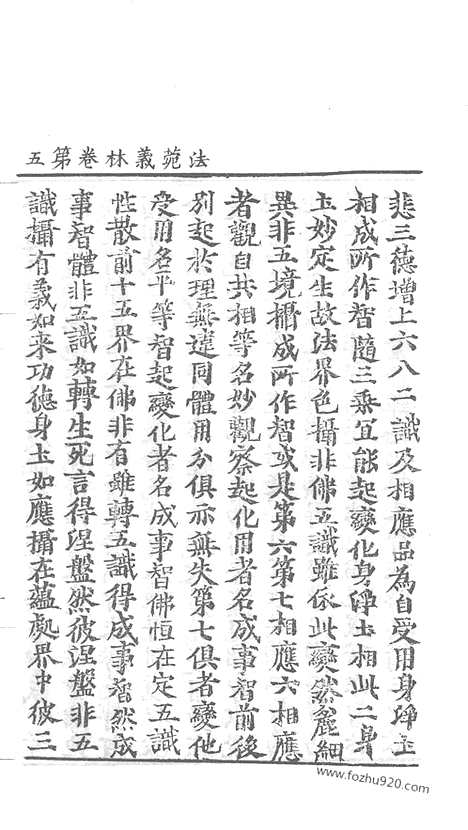 法苑義林卷第五
悲三德增上六八二識及相應品為自受用身淨土
相成所作智隨三乘宜能起變化身淨土相此二身
土妙定生故法界色攝非佛五識雖依此變然麁細
異非五境攝成所作智或是第六第七相應六相應
者觀自共相等名妙觀察起化用者名成事智前後
別起於理無違同體用分俱亦無失第七俱者變他
受用名平等智起變化者名成事智佛恒在定五識
性散前十五界在佛非有雖轉五識得成事智然成
事智體非五識如轉生死言得涅盤然彼涅盤非五
識攝有義如来功德身土如應攝在蘊處界中彼三
www.fozhu920.com